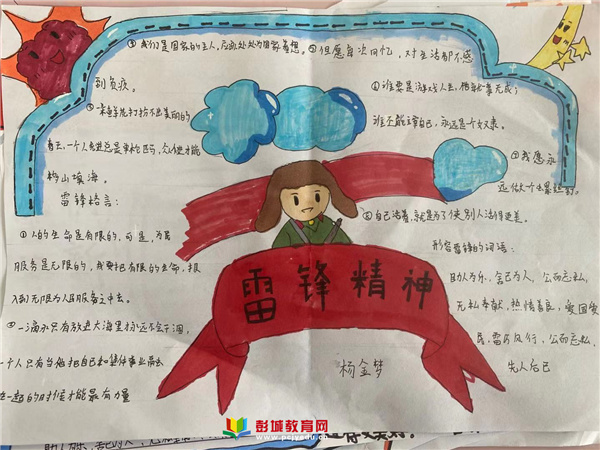 ①我们是国家的主人,应该处处为国家着想。②但愿每次回忆,对生活都不感
到负疚。
④谁要是游戏人生,他就一事无成;
谁不能主宰自己,永远是一个奴隶。
③一朵鲜花打扮不出美丽的
春天,一个人先进总是单枪匹马,众人先进才能
移山填海。
⑤我愿永
远做一个螺丝钉。
雷锋格言:
⑥自己活着,就是为了使别人活得更美。
①人的生命是有限的,可是,为人民
服务是无限的,我要把有限的生命,投
入到无限为人民服务之中去。
②一滴水只有放进大海里永远不会干涸,
一个人只有当他把自己和集体事业融合
在一起的时候才能最有力量
形容雷锋的词语:
助人为乐、舍己为人、公而忘私、
无私奉献,热情善良,爱国爱
民、雷厉风行,公而忘私、
先人后己
雷锋精神
杨金梦
彭城教育网
www.pcjyedu.cn